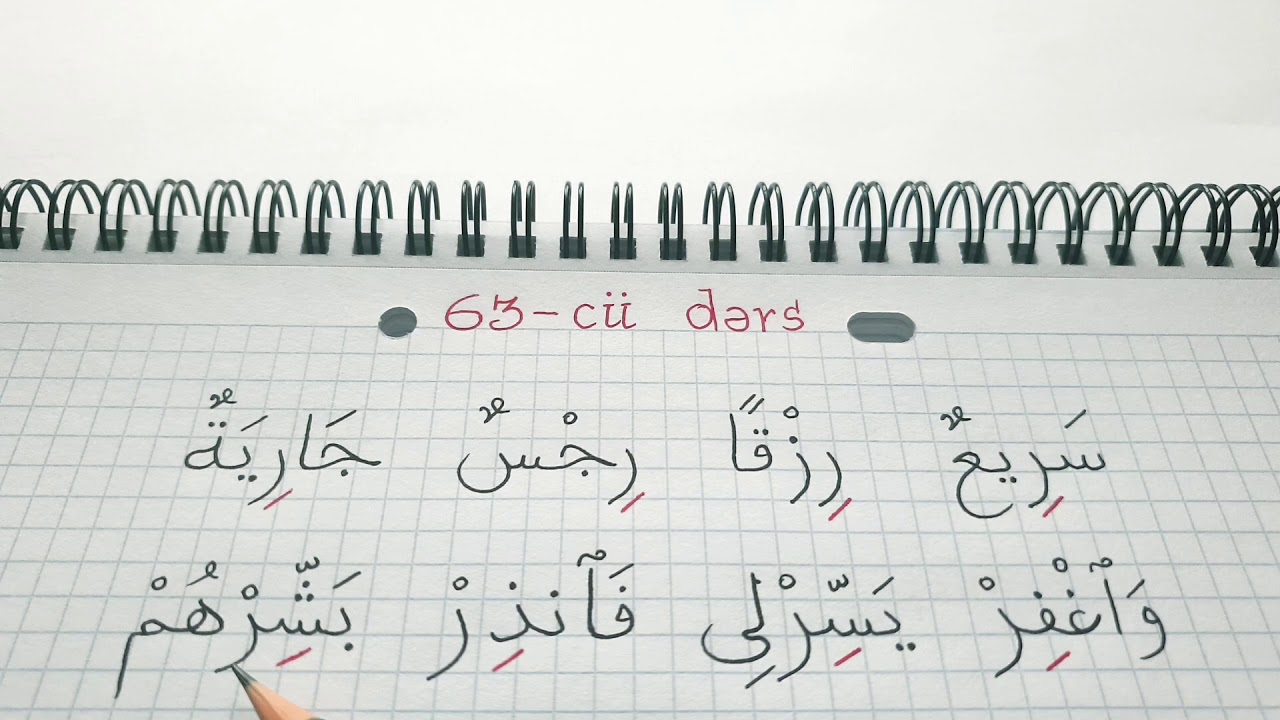 63-cü dərs
سَرِيعٌ رِزْقًا رِجْسٌ جَارِيَةٌ
وَٱغْفِرْ يَسِّرْلِي فَٱنذِرْ بَشِّرْهُمْ